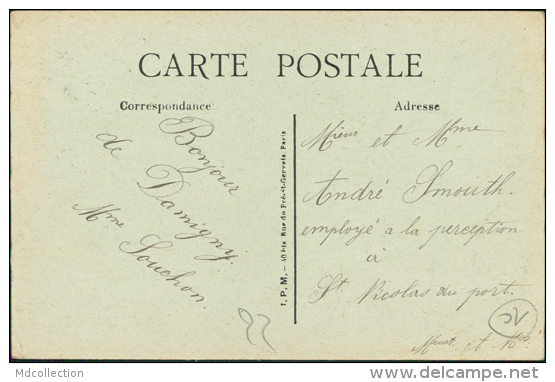 CARTE POSTALE
Correspondance
Adresse
Bonjour
de Damigny.
Mme Souchon.
I. P. M. — 10 bis Rue du Pré-St-Gervais, Paris
Mieur et Mme
André Smouth.
employé a la perception
à
St Nicolas du port.
Meurt et Mos
22
Mdcollection
http://www.delcampe.net